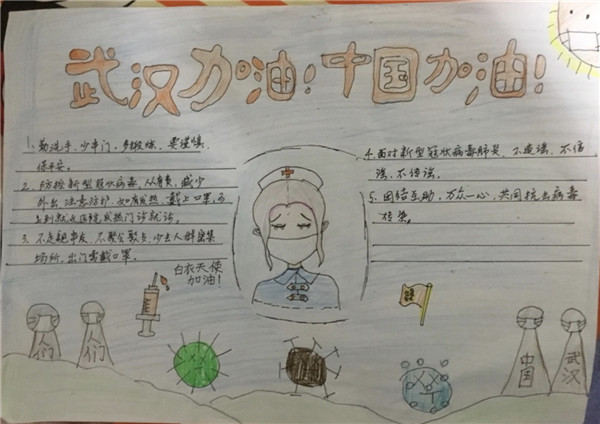 武汉加油！中国加油！
1、勤洗手、少串门，多锻炼，要谨慎，
保平安。
2、防控新型冠状病毒，从身素，减少
外出，注意防护，如有发热，戴上口罩，马
上到就近医院发热门诊就诊。
3、不走亲串友，不聚会聚歺，少去人群密集
场所，出门需戴口罩。
白衣天使
加油！
4、面对新型冠状病毒肺炎，不造谣、不信
谣、不传谣。
5、团结互助，万众一心，共同抗击病毒
传染。
人们
人们
中国
武汉